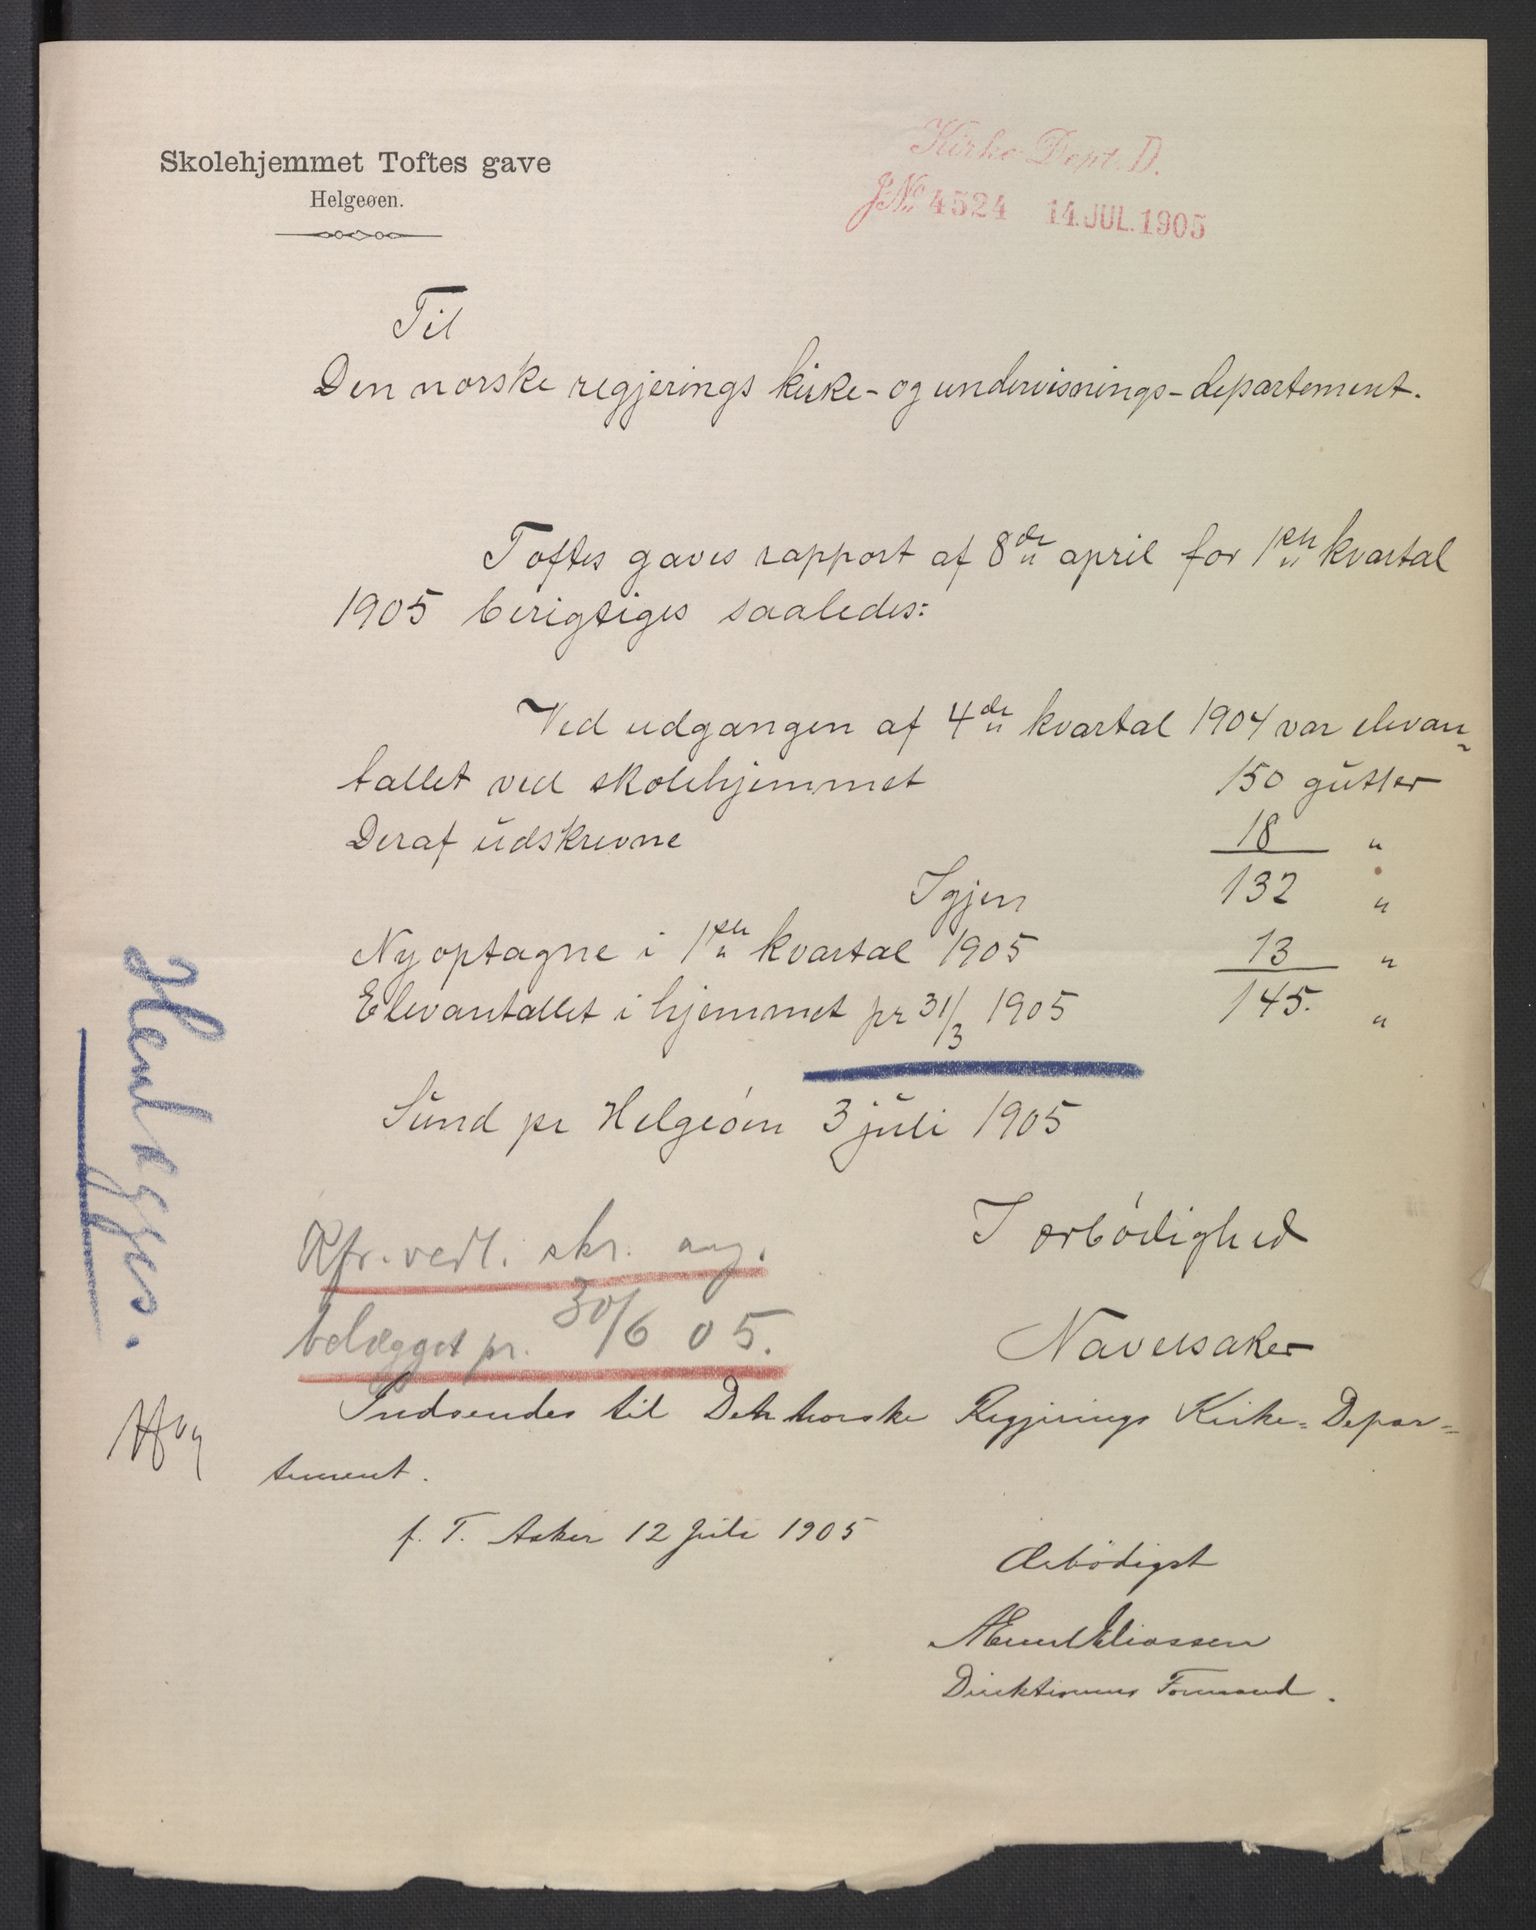 Skolehjemmet Toftes gave
Helgeøen.
Kirke-Dept. D.
J No 4524 14. JUL. 1905
Til
Den norske regjerings kirke- og undervisnings-departement.
Toftes gaves rapport af 8de april for 1ste kvartal
1905 berigtiges saaledes:
Ved udgangen af 4de kvartal 1904 var elevan-
tallet ved skolehjemmet 150 gutter
Deraf udskrevne 18 "
Igjen 132 "
Ny optagne i 1ste kvartal 1905 13 "
Elevantallet i hjemmet pr 31/3 1905 145. "
Sund pr Helgeøen 3 juli 1905
I ærbödighed
Naversaker
Kfr. vedl. skr. ang.
belægget pr. 30/6 05.
Henlægges.
Indsendes til Den norske Regjerings Kirke-Depar-
tement.
f. T. Asker 12 Juli 1905
Ærbödigst
Eliassen
Direktionens Formand.